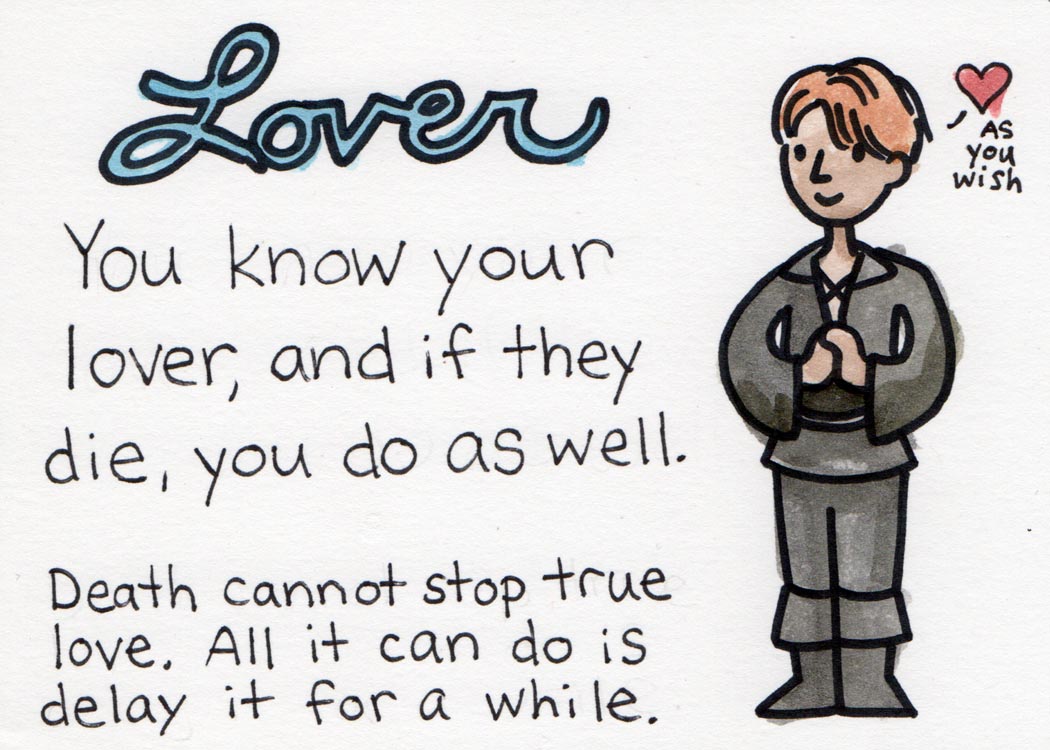 Lover
You know your
lover, and if they
die, you do as well.
Death cannot stop true
love. All it can do is
delay it for a while.
As
you
wish